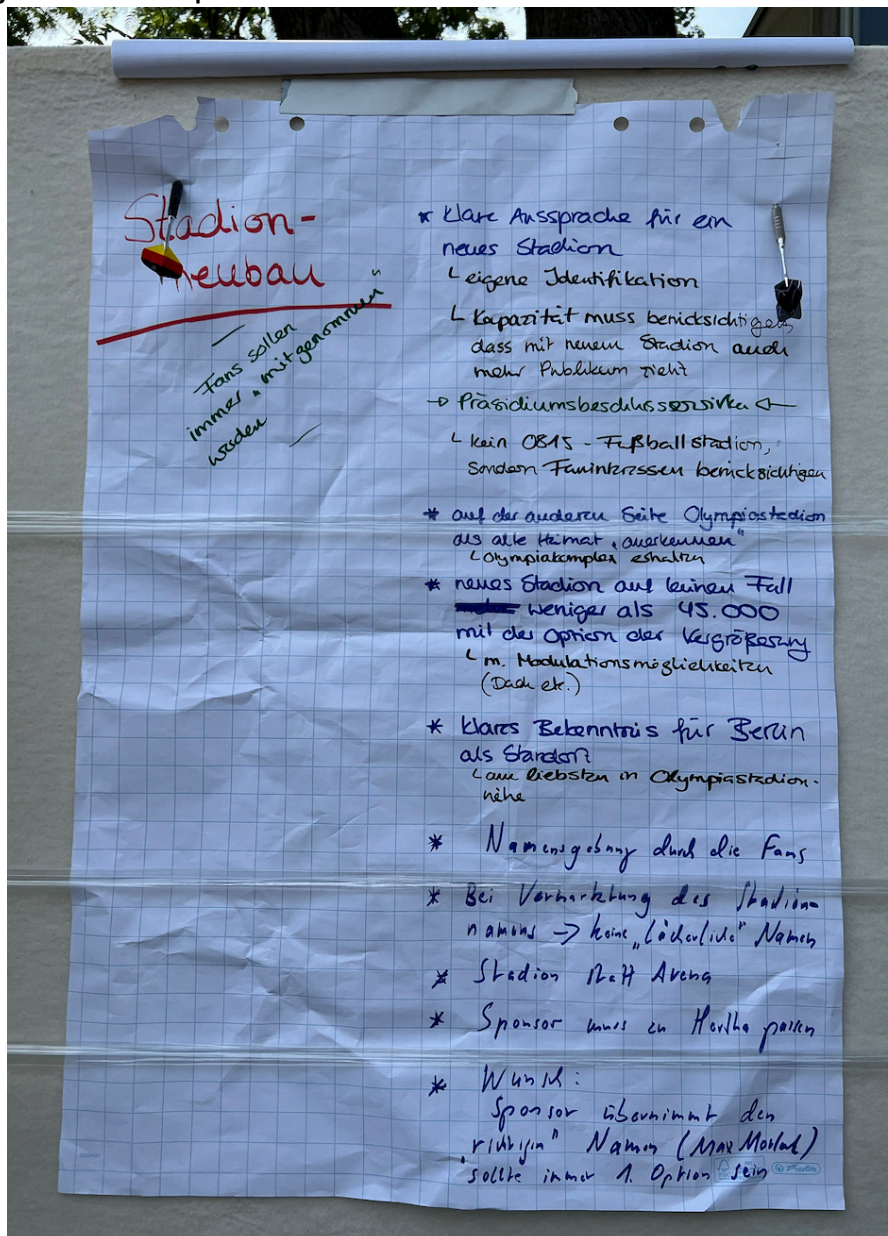 Stadion-
neubau
Fans sollen
immer "mitgenommen"
werden
* klare Aussprache für ein
neues Stadion
└ eigene Identifikation
└ Kapazität muss berücksichtigen,
dass mit neuem Stadion auch
mehr Publikum zieht
→ Präsidiumsbeschluss ←
└ kein 0815 - Fußballstadion,
sondern Faninteressen berücksichtigen
* auf der anderen Seite Olympiastadion
als alte Heimat "anerkennen"
└ Olympiakomplex erhalten
* neues Stadion auf keinen Fall
weniger als 45.000
mit der Option der Vergrößerung
└ m. Modulationsmöglichkeiten
(Dach etc.)
* klares Bekenntnis für Berlin
als Standort
└ am liebsten in Olympiastadion-
nähe
* Namensgebung durch die Fans
* Bei Vermarktung des Stadion-
namens → keine "lächerliche" Namen
* Stadion statt Arena
* Sponsor muss zu Hertha passen
* Wunsch:
Sponsor übernimmt den
"richtigen" Namen (Max Morlock)
sollte immer 1. Option sein